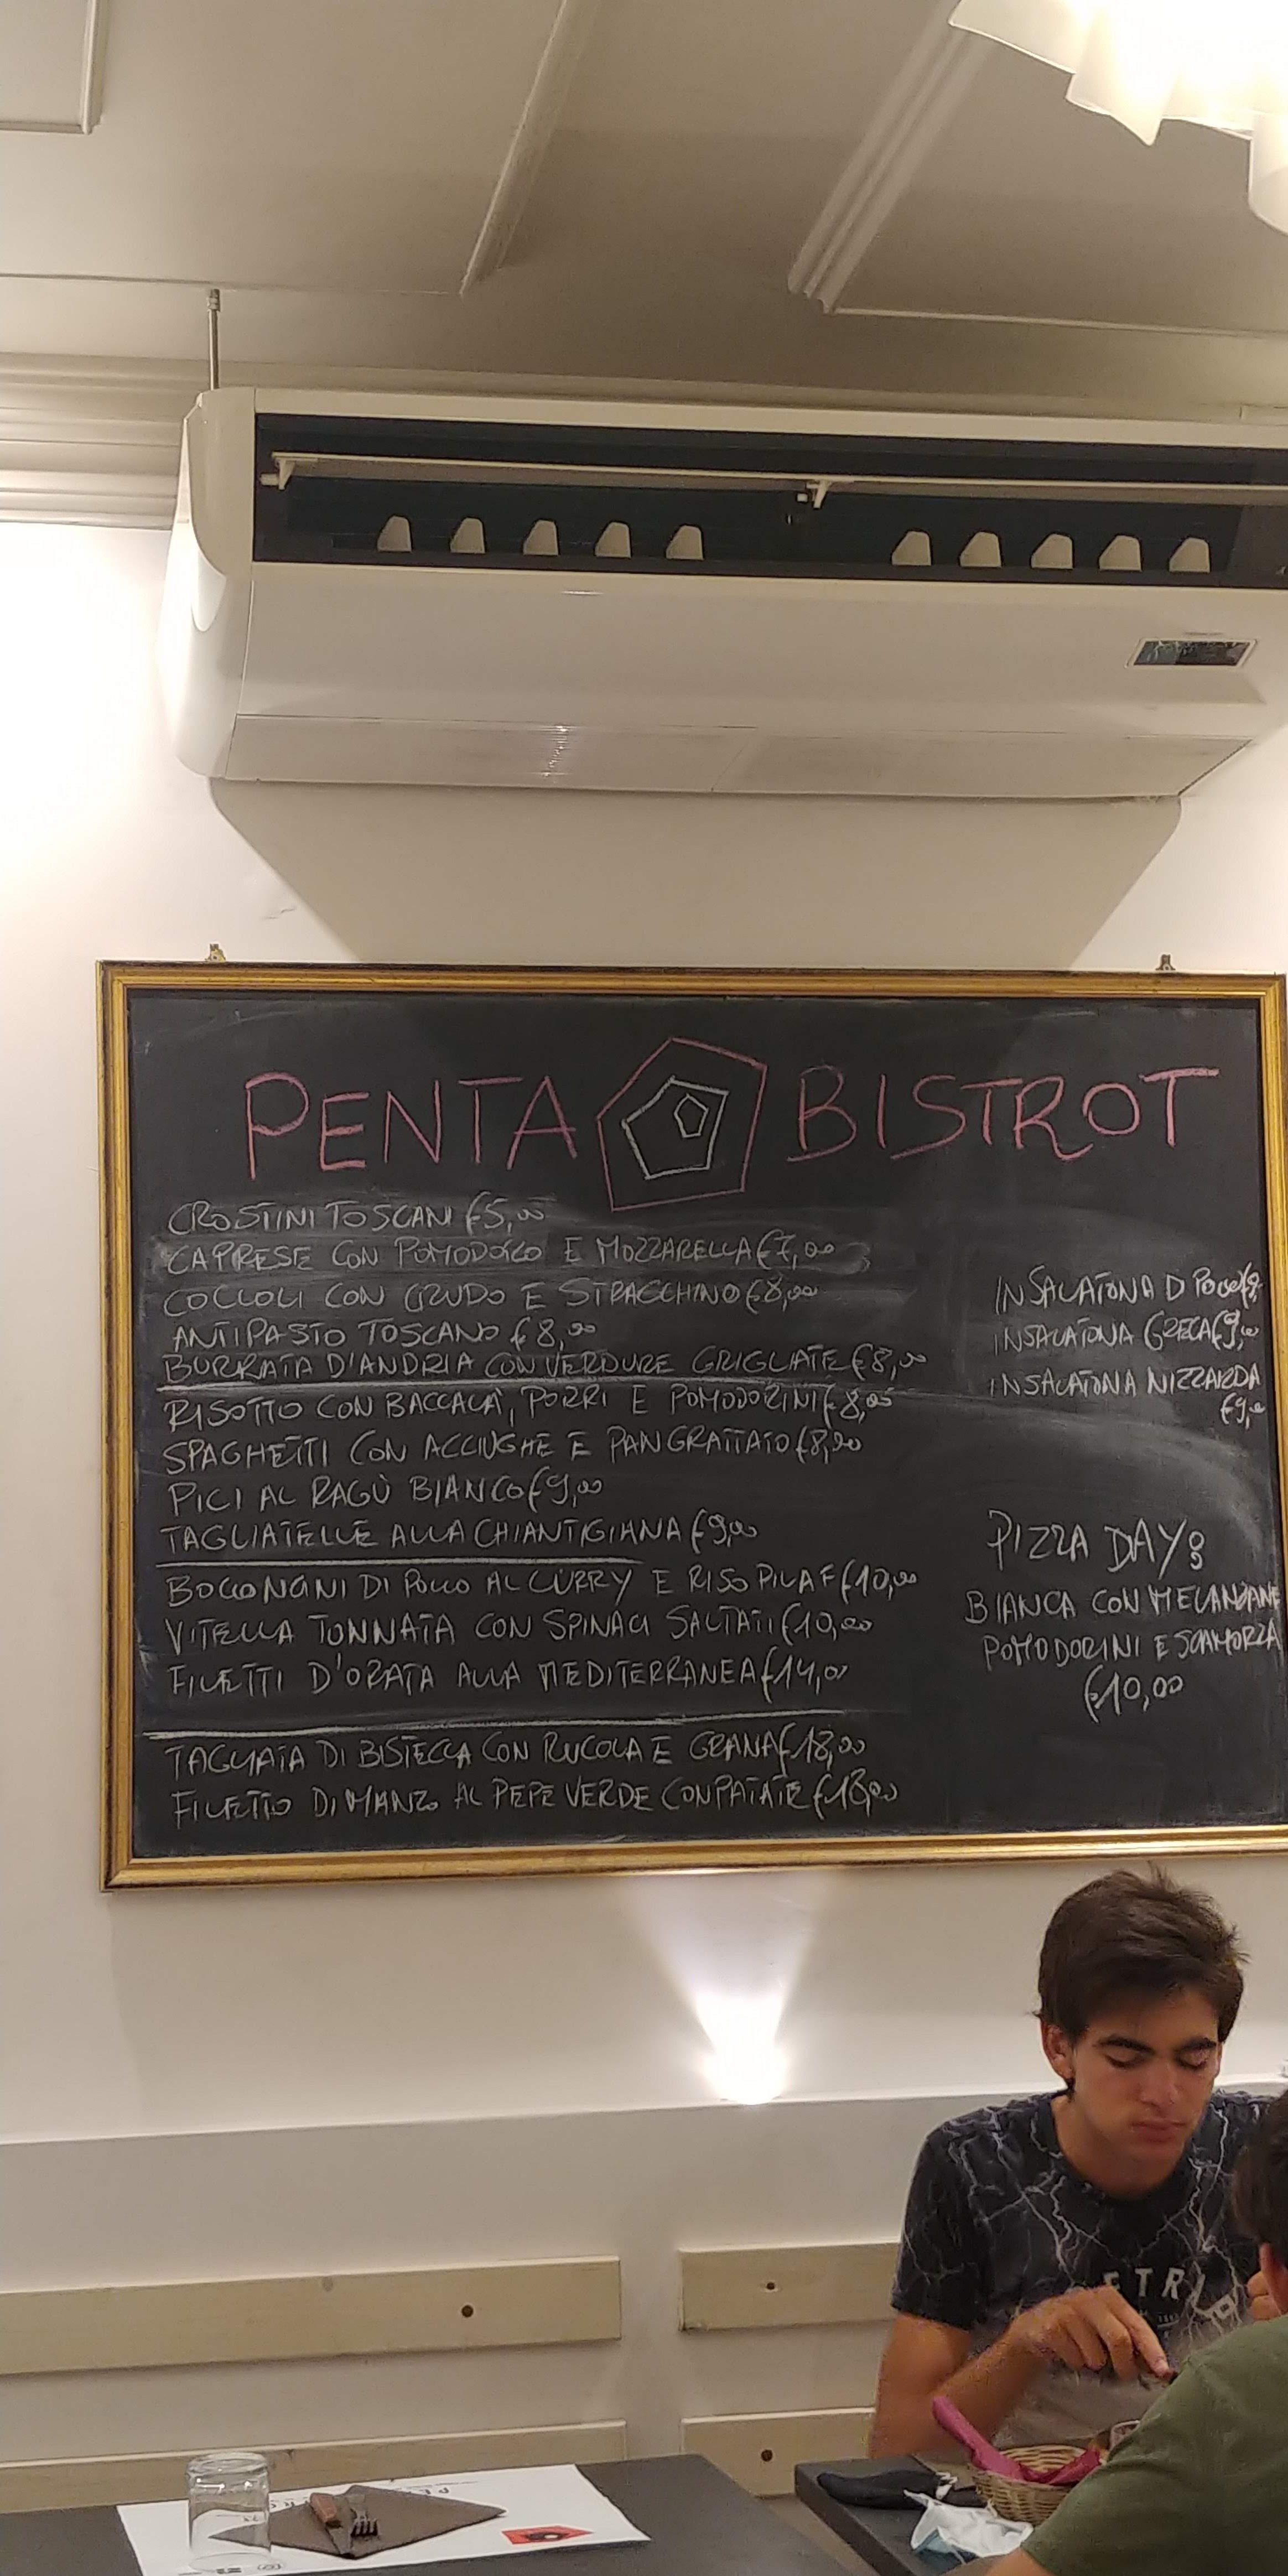 PENTA BISTROT
CROSTINI TOSCANI €5,00
CAPRESE CON POMODORO E MOZZARELLA €7,00
COCCOLI CON CRUDO E STRACCHINO €8,00
ANTIPASTO TOSCANO €8,00
BURRATA D'ANDRIA CON VERDURE GRIGLIATE €8,00
RISOTTO CON BACCALÀ, PORRI E POMODORINI €8,00
SPAGHETTI CON ACCIUGHE E PANGRATTATO €8,00
PICI AL RAGÙ BIANCO €9,00
TAGLIATELLE ALLA CHIANTIGIANA €9,00
BOCCONCINI DI POLLO AL CURRY E RISO PILAF €10,00
VITELLA TONNATA CON SPINACI SALTATI €10,00
FILETTI D'ORATA ALLA MEDITERRANEA €14,00
TAGLIATA DI BISTECCA CON RUCOLA E GRANA €18,00
FILETTO DI MANZO AL PEPE VERDE CON PATATE €18,00
INSALATONA D POLLO €9,
INSALATONA GRECA €9,00
INSALATONA NIZZARDA
€9,
PIZZA DAY:
BIANCA CON MELANZANE
POMODORINI E SCAMORZA
€10,00